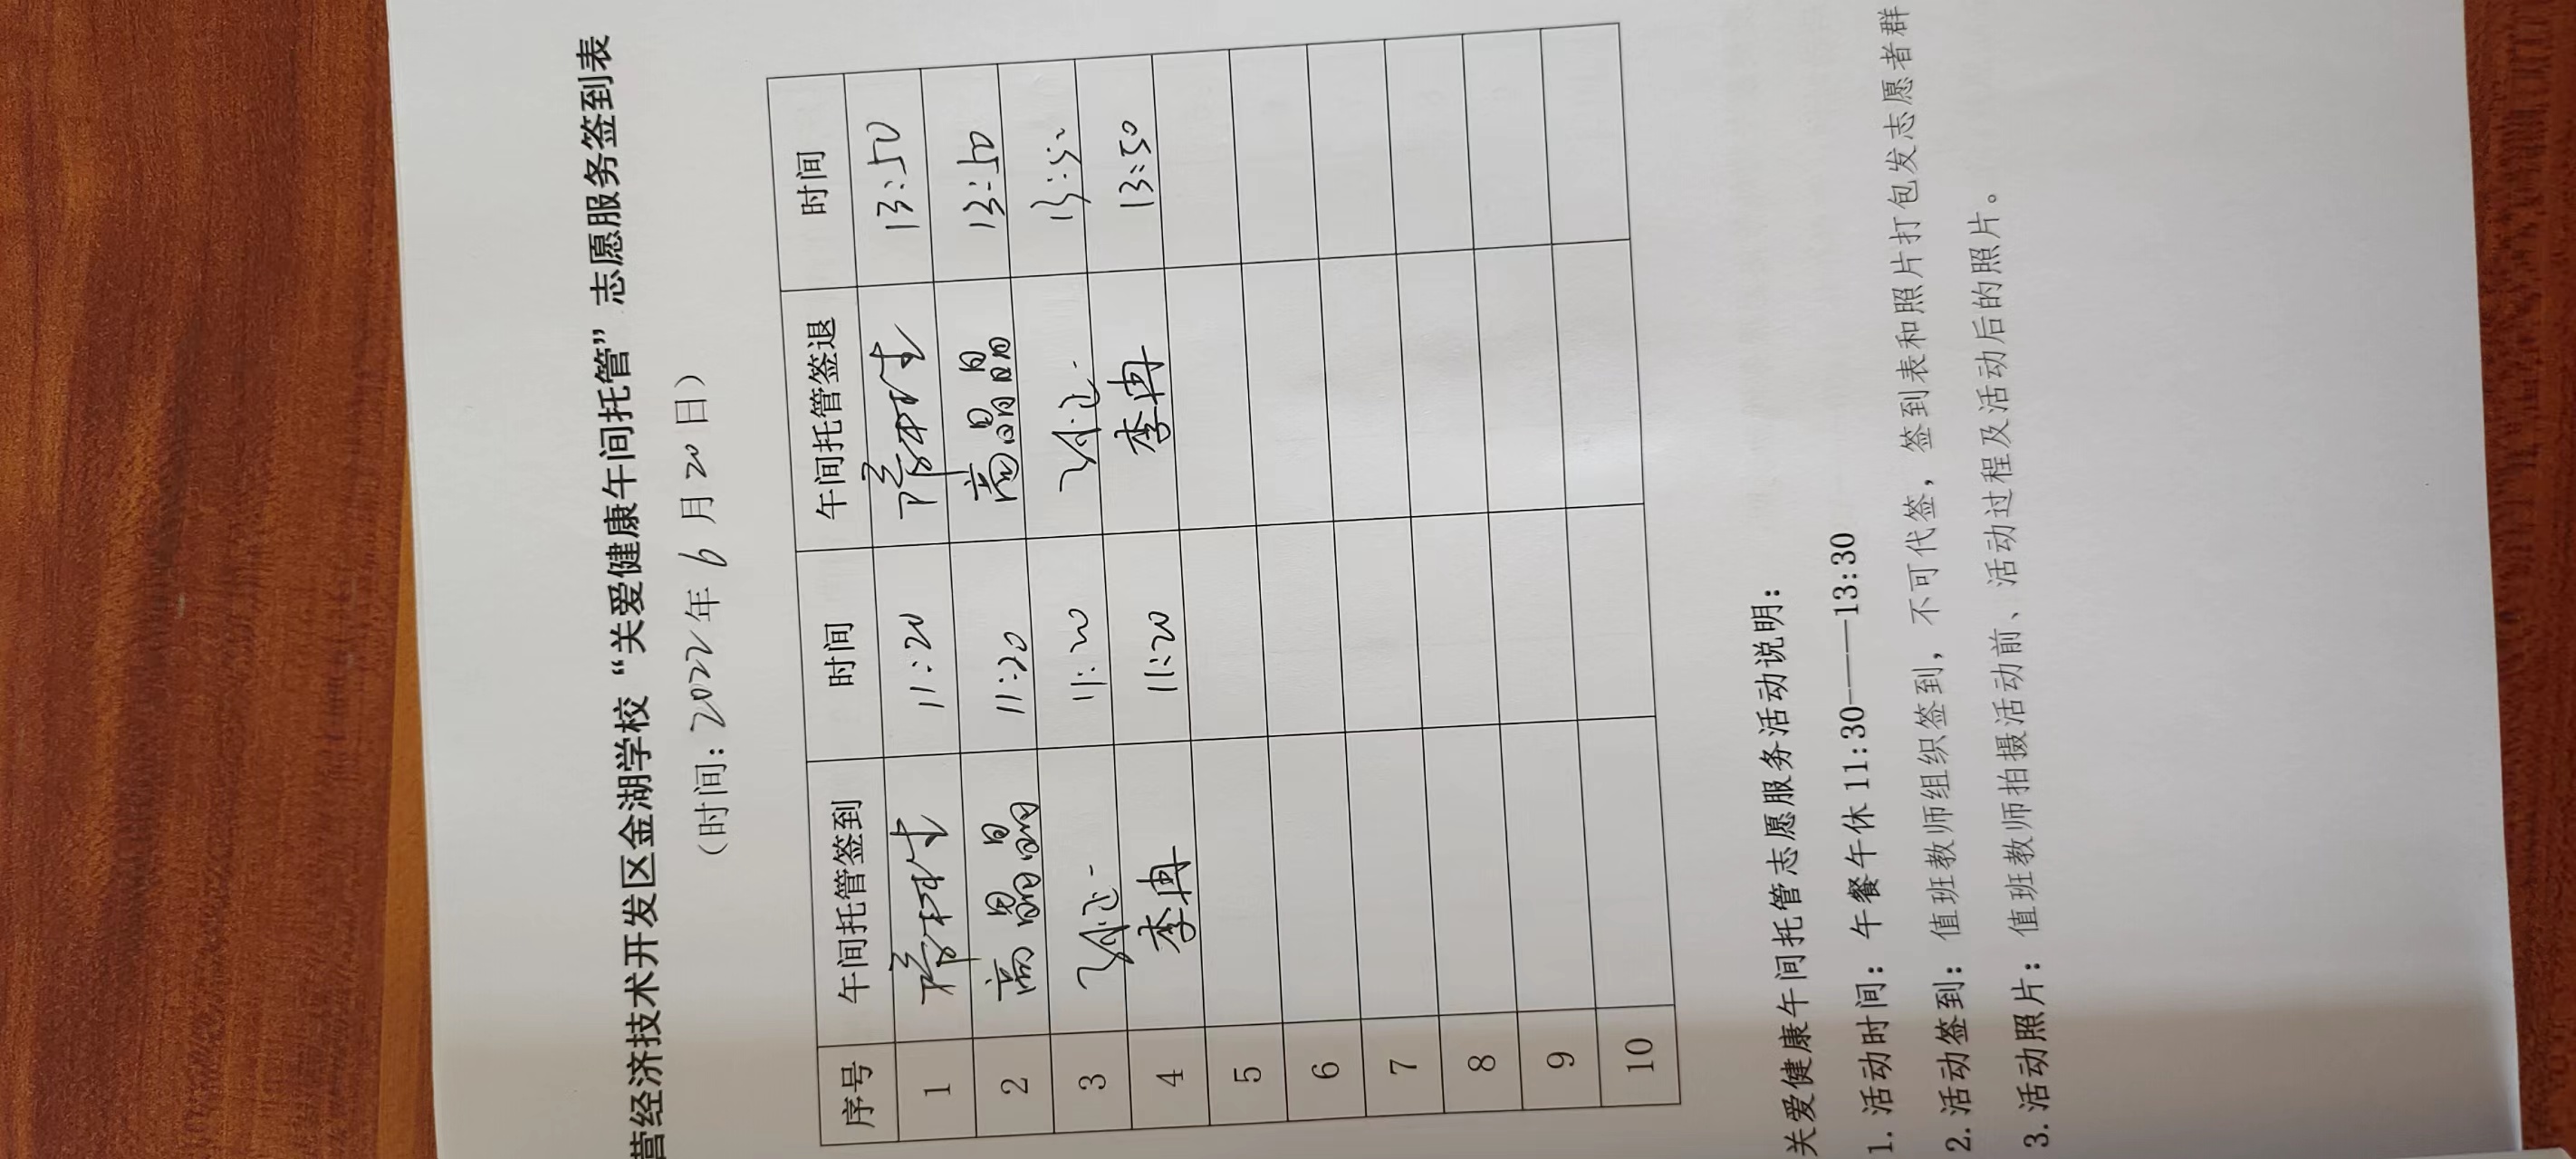 营经济技术开发区金湖学校“关爱健康午间托管”志愿服务签到表
（时间：2022年6月20日）
序号 午间托管签到 时间 午间托管签退 时间
1 11:20 13:50
2 高晶晶 11:20 高晶晶 13:50
3 11:20 13:50
4 李冉 11:20 李冉 13:50
5
6
7
8
9
10
关爱健康午间托管志愿服务活动说明：
1. 活动时间：午餐午休 11:30———13:30
2. 活动签到：值班教师组织签到，不可代签，签到表和照片打包发志愿者群
3. 活动照片：值班教师拍摄活动前、活动过程及活动后的照片。